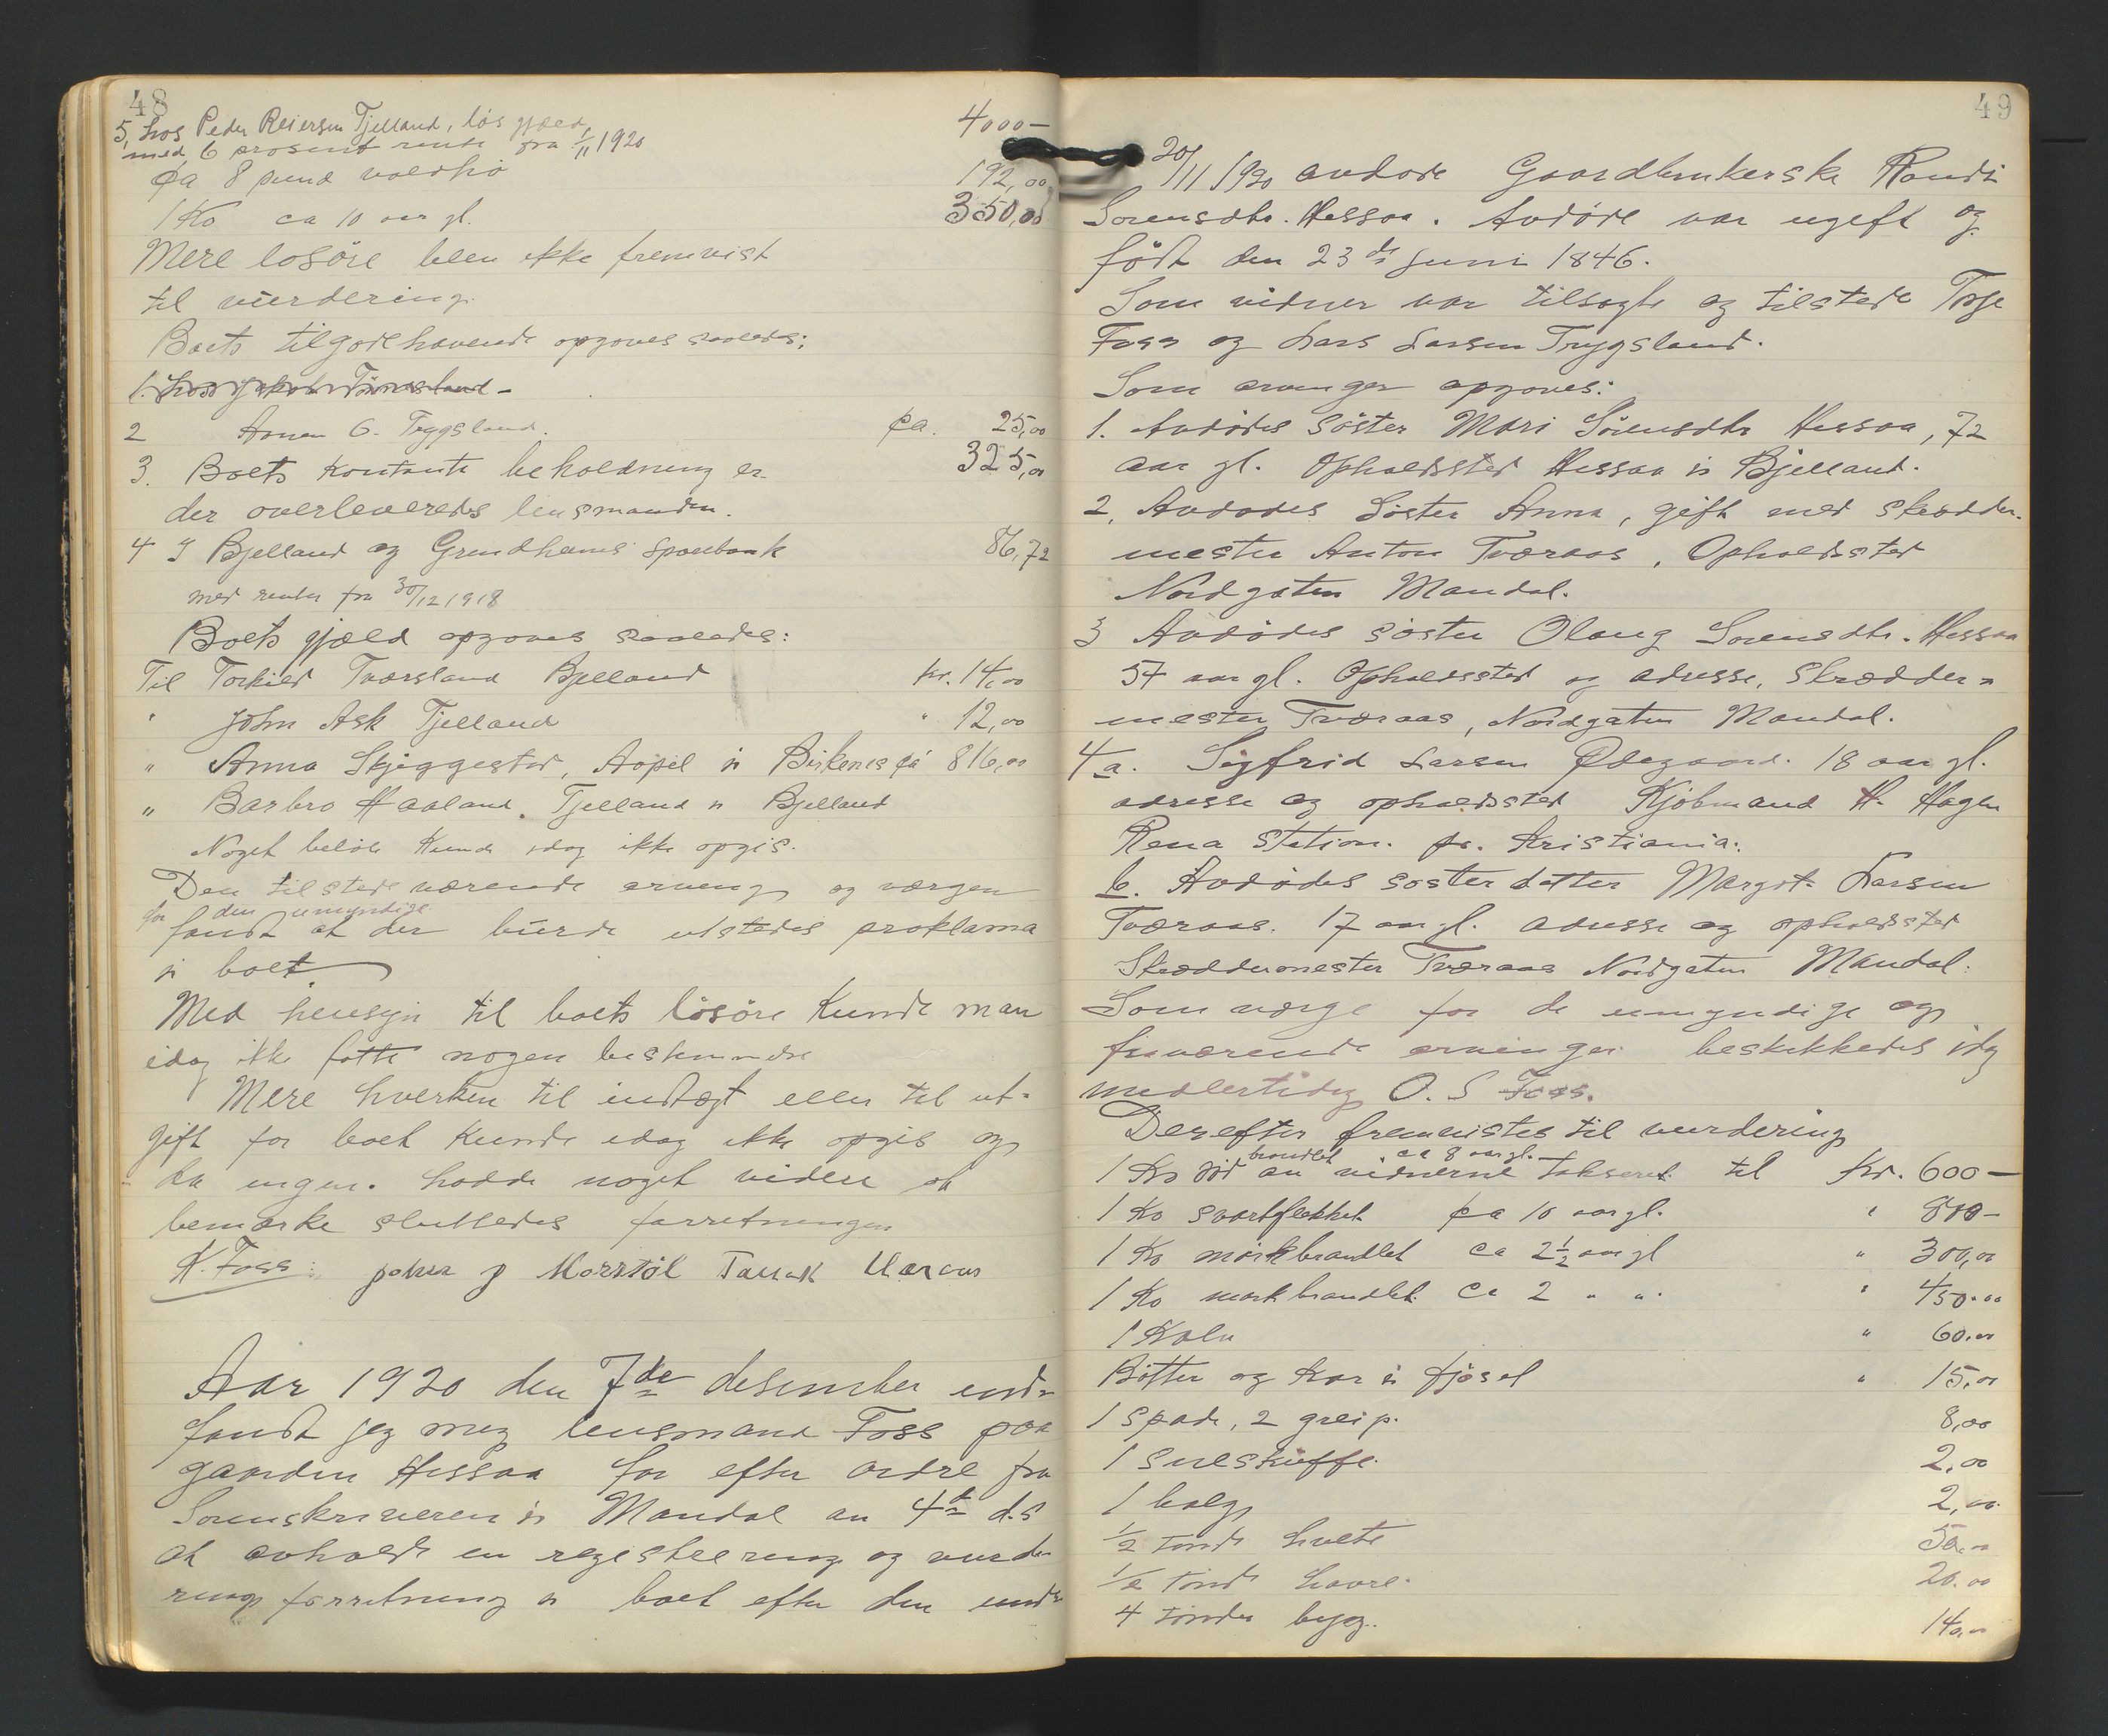 48
5, hos Peder Reiersen Tjelland, løs gjæld, 4000 —
med 6 prosent rente fra 1/11 1920
ca 8 pund voldhö 192,00
1 Ko ca 10 aar gl. 350,00
Mere losöre blev ikke fremvist
til vurdering.
Boets tilgodehavende opgoves saaledes:
1. hos
2 G. Trygsland. ca. 25,00
3. Boets Kontante beholdning er 325,00
der overleveredes lensmanden.
4 I Bjelland og Grindheims Sparebank 86,72
med renter fra 30/12 1918
Boets gjæld opgoves saaledes:
Til Torkild Tværsland Bjelland kr. 14,00
" John Ask Tjelland " 12,00
" Anna Skjeggestad, i Birkenes ca 816,00
" Barbro Haaland. Tjelland i Bjelland
Noget belöb Kunde idag ikke opgis.
Den tilstedeværende arving og værgen
for den umyndige
fandt at der burde utstedes proklama
i boet
Med hensyn til boets lösöre Kunde man
idag ikke fatte nogen bestemmelse
Mere hverken til indtægt eller til ut-
gift for boet Kunde idag ikke opgis og
da ingen. hadde noget videre at
bemærke sluttedes forretningen
K. Foss:
Aar 1920 den 7de desember ind-
fandt jeg mig lensmand Foss paa
gaarden Hessaa for efter ordre fra
Sorenskriveren i Mandal av 4de d.s
at avholde en registrering og vurde-
rings forretning i boet efter den under
49
20/11 1920 avdøde Gaardbrukerske Randi
Sorensdtr. Hessaa. Avdøde var ugift og
født den 23de Juni 1846.
Som vidner var tilsagte og tilstede Torje
Foss og Lars Larsen Trygsland.
Som arvinger opgoves:
1. Avdödes söster Mari Sörensdtr Hessaa, 72
aar gl. Opholdssted Hessaa i Bjelland.
2, Avdodes Söster Anna, gift med skrædder-
mester Anton Tværaas, Opholdssted
Nordgaten Mandal.
3 Avdödes söster Olaug Sorensdtr. Hessaa
57 aar gl. Opholdssted og adresse, Skrædder-
mester Tværaas, Nordgaten Mandal.
4 a. Sigfrid Larsen Ødegaard. 18 aar gl.
adresse og opholdssted Kjöbmand H. Hagen
Rena Station. pr. Kristiania.
b. Avdödes sosterdatter Margit Larsen
Tværaas. 17 aar gl. adresse og opholdssted
Skræddermester Tværaas Nordgaten Mandal.
Som værge for de umyndige og
fraværende arvinger beskikkedes idag
midlertidig O. S Foss.
Derefter fremvistes til vurdering
brandlet ca 8 aar gl.
1 Ko av vidnerne takseret til Kr. 600 —
1 Ko svartflekket ca 10 aar gl. " 800 —
1 Ko mörkbrandlet ca 2½ aar gl " 300,00
1 Ko mörkbrandlet ca 2 " " " 450.00
1 Kalv " 60.00
Bötter og Kar i fjöset " 15,00
1 Spade, 2 greip. 8,00
1 sneskuffe. 2.00
1 balg 2,00
½ tönde hvete 50,00
½ tönde havre. 20.00
4 tönder bygg. 140,00